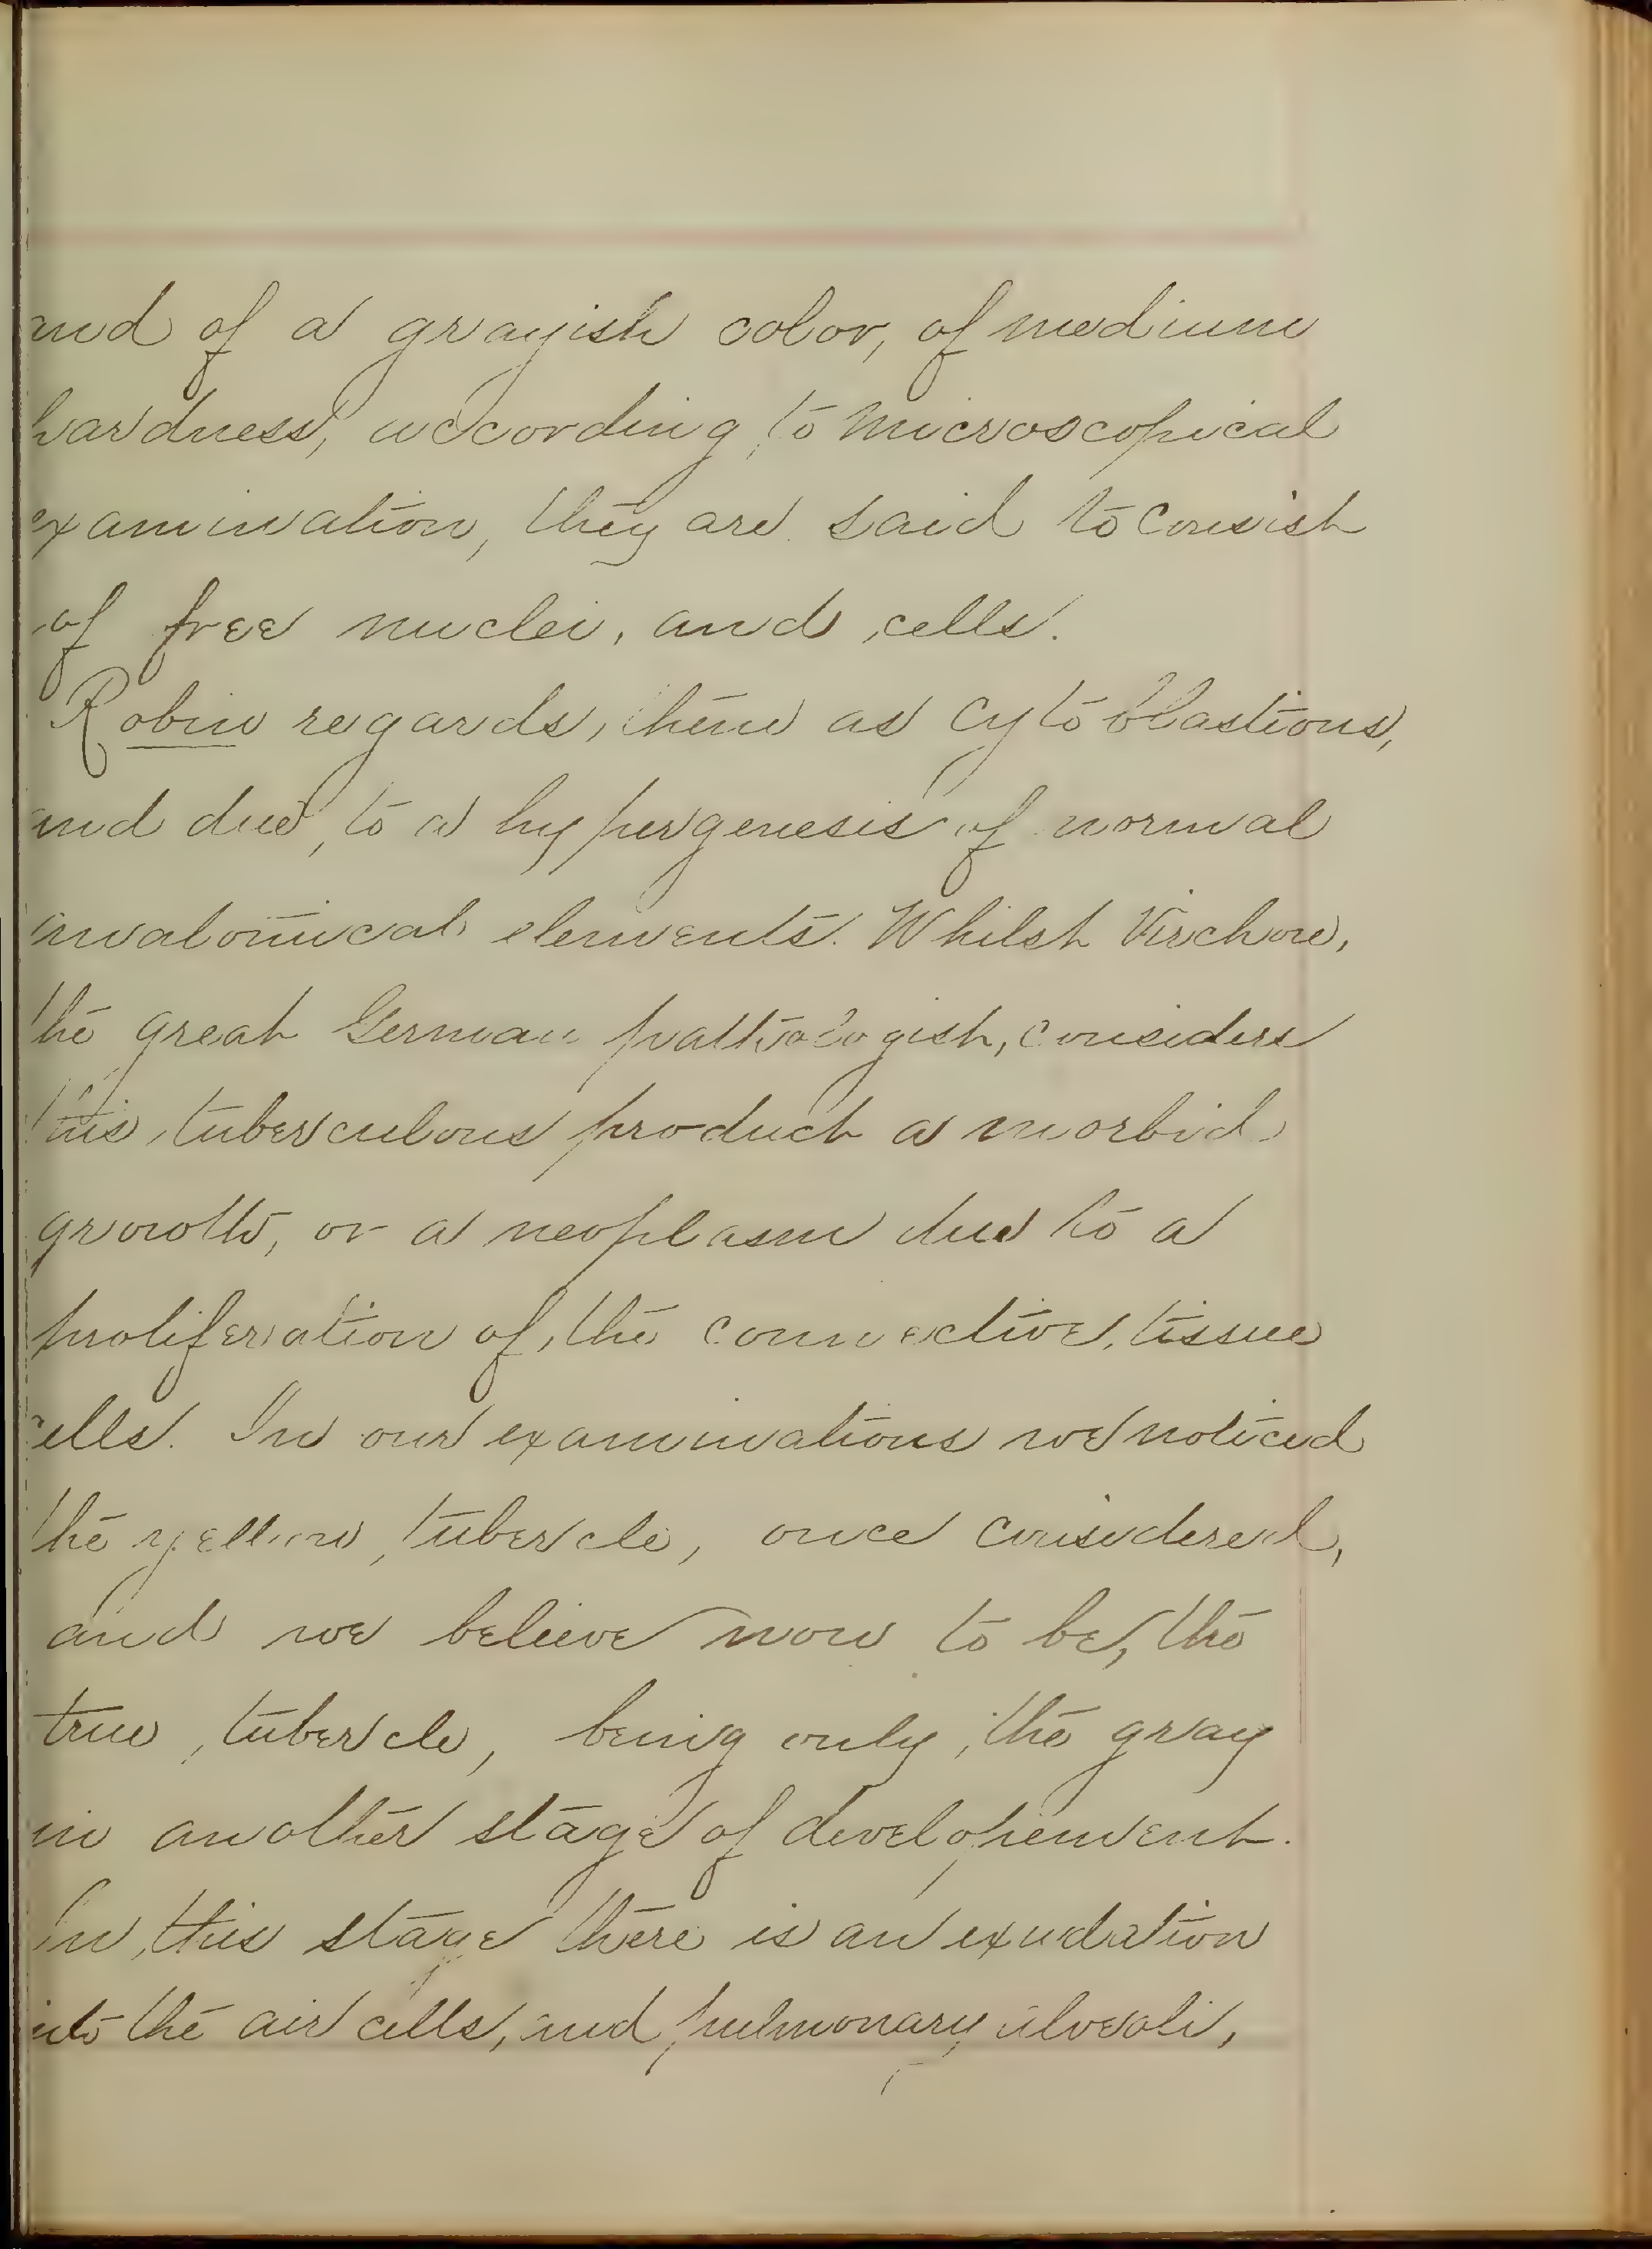 and of a grayish color, of medium
hardness, according to microscopical
examination, they are said to consist
of free nuclei, and cells.
Robin regards, them as cytoblastions,
and due, to a hypergenesis of normal
anatomical elements. Whilst Virchow,
the great German pathologist, considers
this tuberculous product a morbid
growth, or a neoplasm due to a
proliferation of the connective tissue
cells. In our examinations we noticed
the yellow tubercle, once considered,
and we believe now to be, the
true tubercle, being only the gray
in another stage of developement.
In this stage there is an exudation
into the air cells, and pulmonary alveoli,